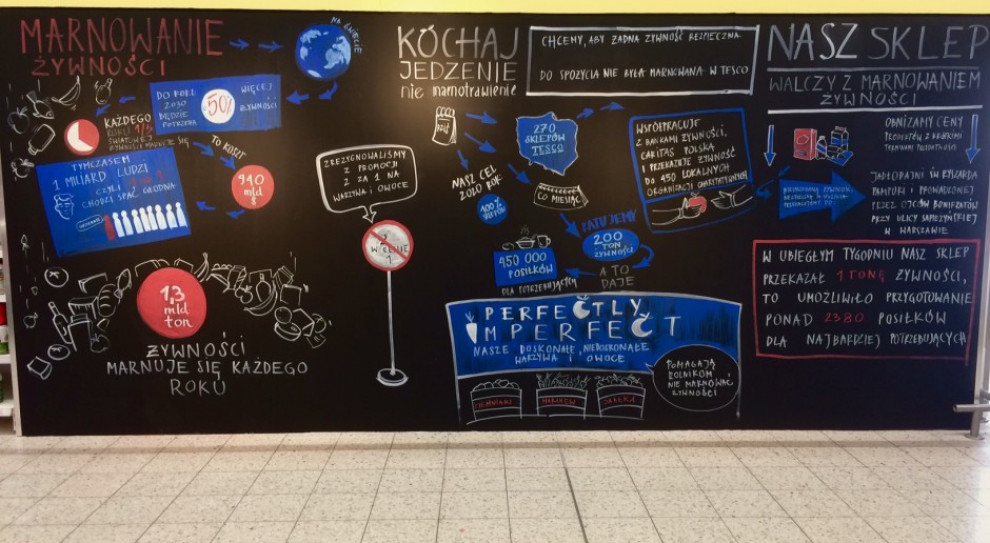 MARNOWANIE
ŻYWNOŚCI
NA ŚWIECIE
DO ROKU
2030
BĘDZIE
POTRZEBA
50%
WIĘCEJ
ŻYWNOŚCI
KAŻDEGO
ROKU 1/3
ŚWIATOWEJ
ŻYWNOŚCI MARNUJE SIĘ
TO KOSZT
940
mld
$
TYMCZASEM
1 MILIARD LUDZI
CZYLI
GŁODNA
CHODZI SPAĆ
1,3
mld
ton
ŻYWNOŚCI
MARNUJE SIĘ KAŻDEGO
ROKU
ZREZYGNOWALIŚMY
Z PROMOCJI
2 ZA 1 NA
WARZYWA I OWOCE
2
W CENIE
1
KOCHAJ
JEDZENIE
nie marnotrawienie
CHCEMY, ABY ŻADNA ŻYWNOŚĆ BEZPIECZNA
DO SPOŻYCIA NIE BYŁA MARNOWANA W TESCO
270
SKLEPÓW
TESCO
NASZ CEL
2020 ROK
100%
SKLEPÓW
CO MIESIĄC
RATUJEMY
200
TON
ŻYWNOŚCI
A TO
DAJE
450 000
POSIŁKÓW
DLA POTRZEBUJĄCYCH
WSPÓŁPRACUJE
Z BANKAMI ŻYWNOŚCI,
CARITAS POLSKA
I PRZEKAZUJE ŻYWNOŚĆ
DO 450 LOKALNYCH
ORGANIZACJI CHARYTATYWNYCH
PERFECTLY
IMPERFECT
NASZE DOSKONAŁE, NIEDOSKONAŁE
WARZYWA I OWOCE
ZIEMNIAKI
MARCHEW
JABŁKA
POMAGAJĄ
ROLNIKOM
NIE MARNOWAĆ
ŻYWNOŚCI
NASZ SKLEP
WALCZY Z MARNOWANIEM
ŻYWNOŚCI
OBNIŻAMY CENY
PRODUKTÓW Z KRÓTKIMI
TERMINAMI PRZYDATNOŚCI
JADŁODAJNI ŚW RYSZARDA
PAMPURI PROWADZONEJ
PRZEZ OJCÓW BONIFRATRÓW
PRZY ULICY SAPIEŻYŃSKIEJ
W WARSZAWIE
W UBIEGŁYM TYGODNIU NASZ SKLEP
PRZEKAZAŁ 1 TONĘ ŻYWNOŚCI,
TO UMOŻLIWIŁO PRZYGOTOWANIE
PONAD 2380 POSIŁKÓW
DLA NAJBARDZIEJ POTRZEBUJĄCYCH